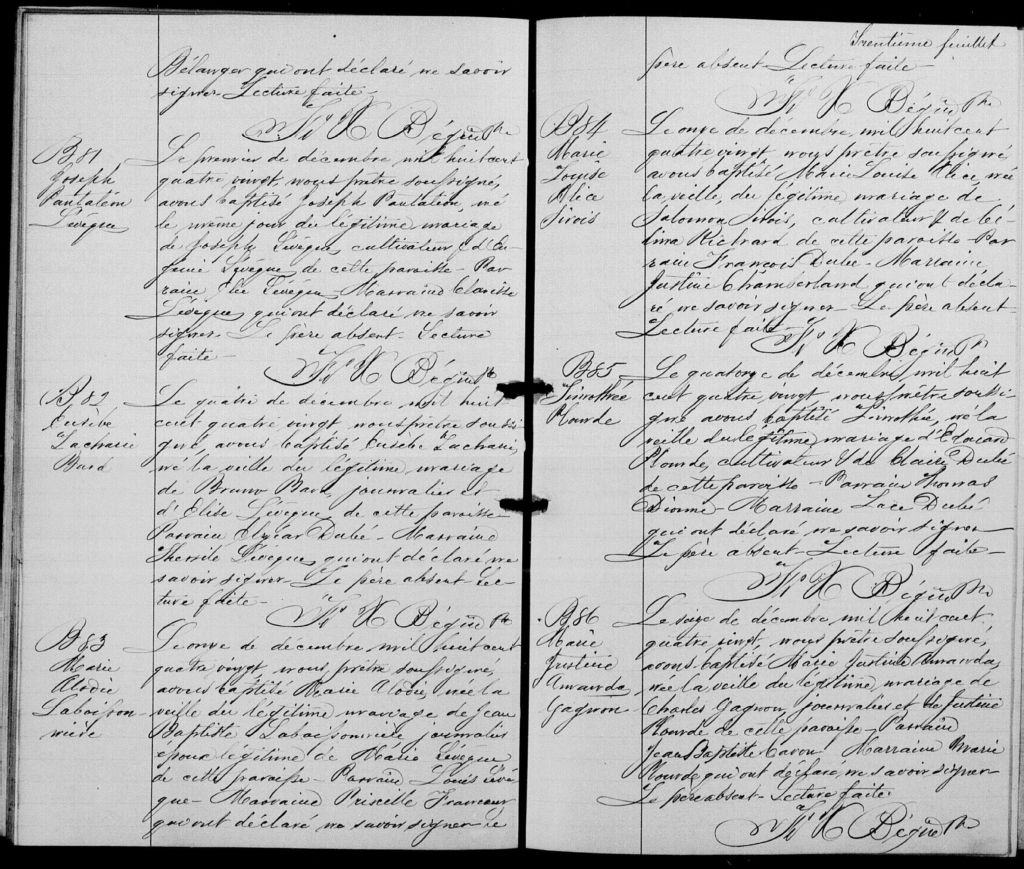 Bélanger qui ont déclaré ne savoir
signer Lecture faite -
Ths X Bégin Ptre
B81
Joseph
Pantaléon
Lévêque
Le premier de décembre mil huit cent
quatre vingt, nous prêtre soussigné,
avons baptisé Joseph Pantaléon, né
le même jour du légitime mariage
de Joseph Lévêque cultivateur & d'Eu-
femie Lévêque de cette paroisse - Par-
rain Elie Lévêque - Marraine Clarisse
Lévêque qui ont déclaré ne savoir
signer - Le père absent - Lecture
faite -
Ths X Bégin Ptre
B82
Eusèbe
Zacharie
Bard
Le quatre de décembre mil huit
cent quatre vingt nous prêtre soussi-
gné avons baptisé Eusèbe Zacharie,
né la veille du légitime mariage
de Bruno Bard, journalier et
d'Elise Lévêque de cette paroisse
Parrain Elzéar Dubé - Marraine
Thersile Lévêque qui ont déclaré ne
savoir signer - Le père absent Lec-
ture faite -
Ths X Bégin Ptre
B83
Marie
Alodie
Laboisson
nière
Le onze de décembre mil huit cent
quatre vingt nous prêtre soussigné,
avons baptisé Marie Alodie, née la
veille du légitime mariage de Jean
Baptiste Laboissonnière journalier
époux légitime de Marie Lévêque
de cette paroisse - Parrain Louis Lévê-
que - Marraine Priscille Francoeur
qui ont déclaré ne savoir signer le
Trentième feuillet
père absent - Lecture faite -
Ths X Bégin Ptre
B84
Marie
Louise
Alice
Sirois
Le onze de décembre, mil huit cent
quatre vingt, nous prêtre soussigné
avons baptisé Marie Louise Alice, née
la veille, du légitime mariage de
Salomon Sirois, cultivateur & de Cé-
lina Richard de cette paroisse - Par-
rain François Dubé - Marraine
Justine Chamberland qui ont décla-
ré, ne savoir signer - Le père absent -
Lecture faite -
Ths X Bégin Ptre
B85
Timothée
Plourde
Le quatorze de décembre, mil huit
cent quatre vingt, nous prêtre soussi-
gné avons baptisé Timothée, né la
veille du légitime mariage d'Edouard
Plourde, cultivateur & de Claire Dubé
de cette paroisse - Parrain Thomas
Dionne - Marraine Luce Dubé
qui ont déclaré ne savoir signer -
Le père absent - Lecture faite -
Ths X Bégin Ptre
B86
Marie
Justine
Amanda
Gagnon
Le seize de décembre, mil huit cent
quatre vingt, nous prêtre soussigné,
avons baptisé Marie Justine Amanda,
née la veille du légitime mariage de
Charles Gagnon, journalier et de Justine
Plourde de cette paroisse - Parrain
Jean Baptiste Caron Marraine Marie
Plourde qui ont déclaré, ne savoir signer
Le père absent - Lecture faite
Ths X Bégin Ptre